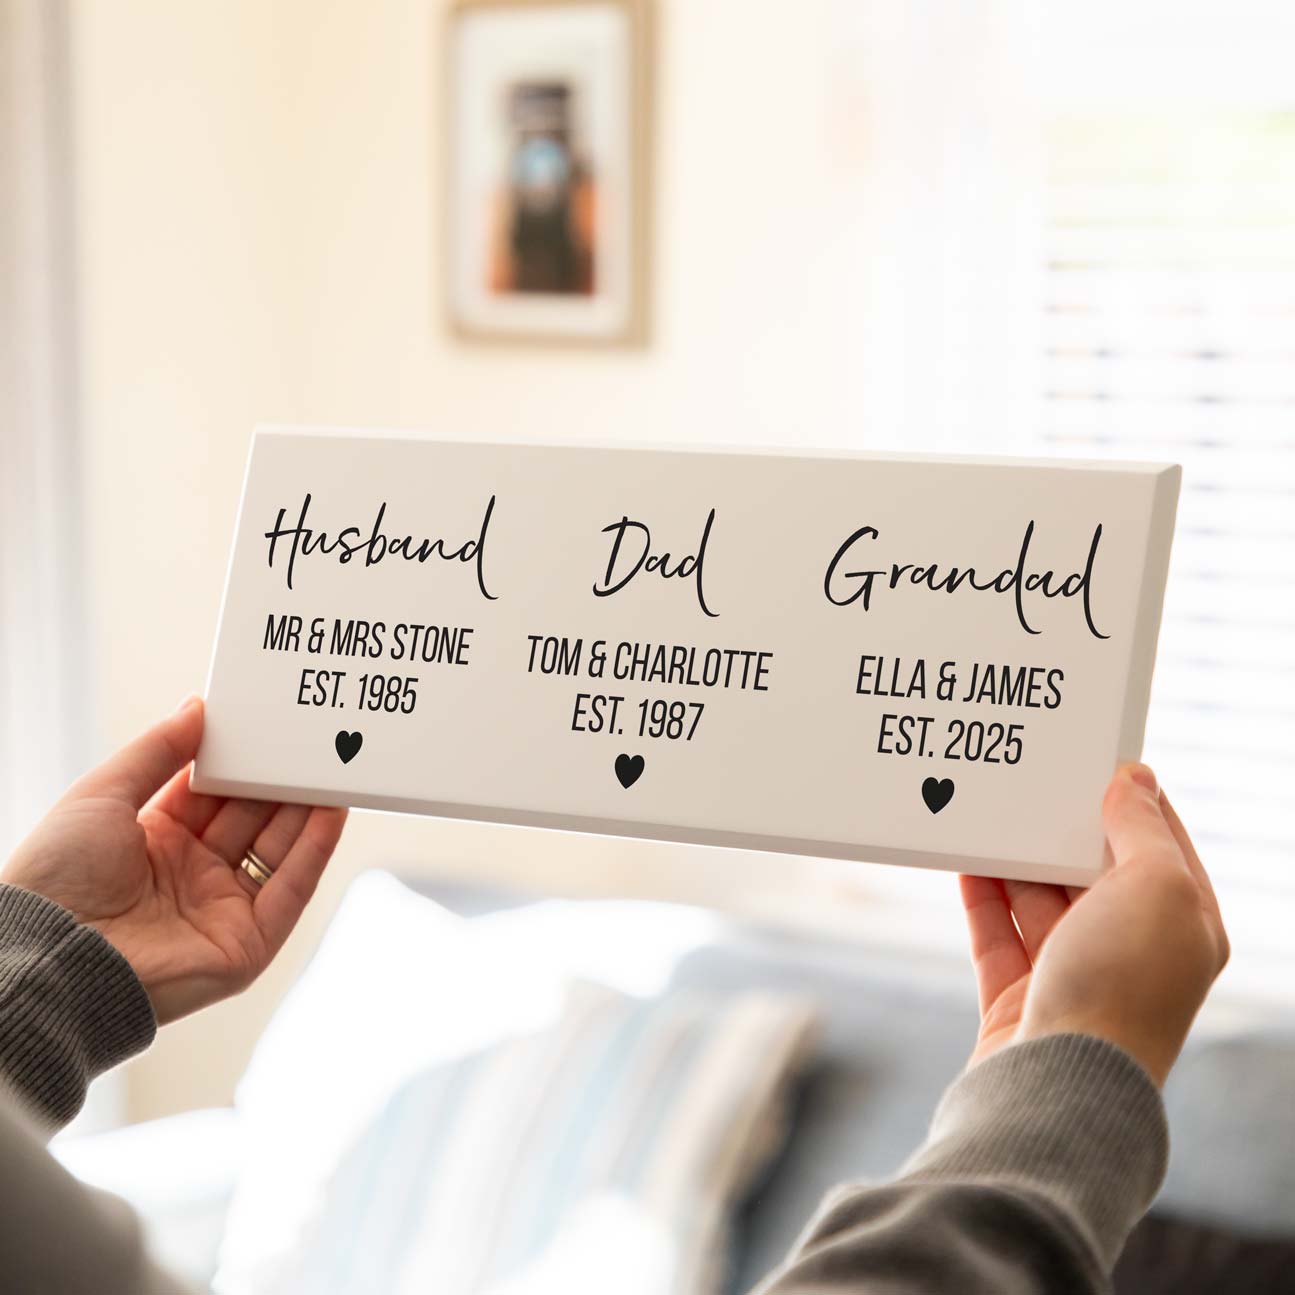 Husband
MR & MRS STONE
EST. 1985
Dad
TOM & CHARLOTTE
EST. 1987
Grandad
ELLA & JAMES
EST. 2025